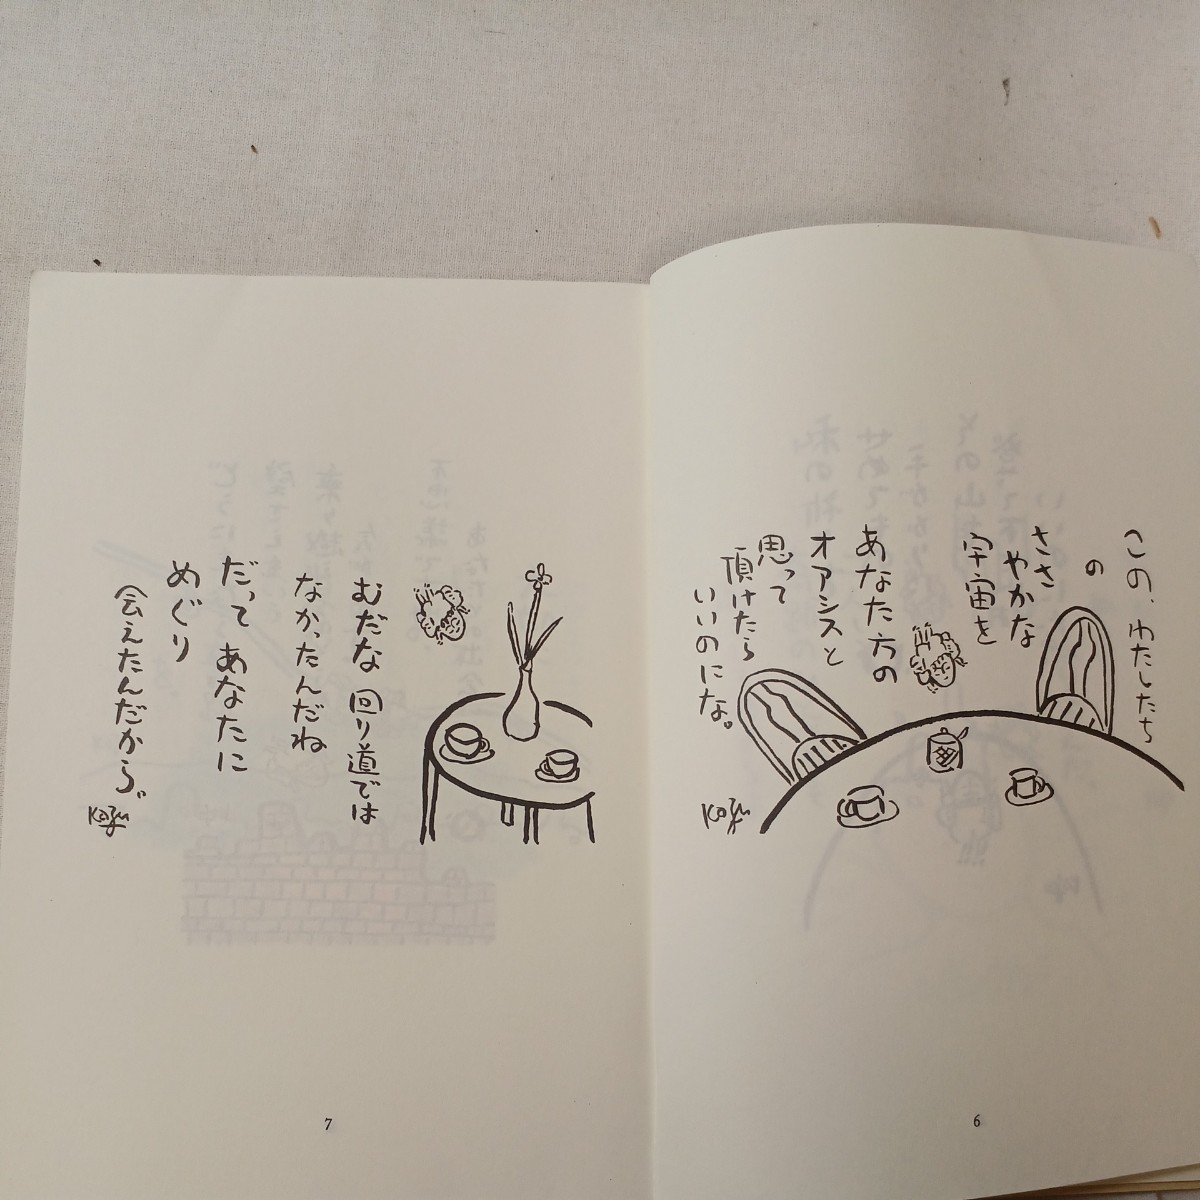 この、わたしたち
の
ささ
やかな
宇宙を
あなた方の
オアシスと
思って
頂けたら
いいのにな。
Kazu
6
むだな 回り道では
なかったんだね
だって あなたに
めぐり
会えたんだから。
Kazu
7